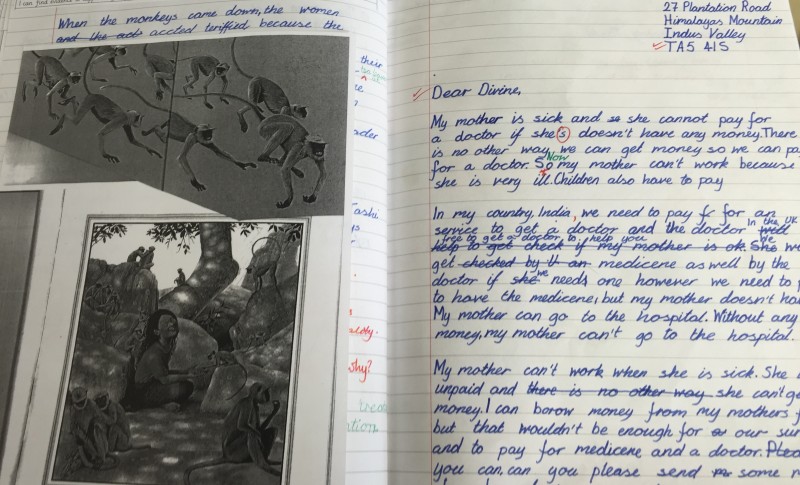 When the monkeys came down, the women
and the acts accted teriffied because the
their
why?
27 Plantation Road
Himalagas Mountain
Indus Valley
TA5 4IS
Dear Divine,
My mother is sick and so she cannot pay for
a doctor if she's doesn't have any money. There
is no other way we can get money so we can pa
Now
for a doctor. So my mother can't work because
she is very ill. Children also have to pay
In my country, India, we need to pay fr for an
service to get a doctor and the doctor will
In the UK
free to get a doctor to help you
help to get check if my mother is ok. She we
get checked by medicene as well by the
doctor if she we needs one however we need to p
to have the medicene, but my mother doesn't ha
My mother can go to the hospital. Without any
money, my mother can't go to the hospital.
My mother can't work when she is sick. She
unpaid and there is no other way she can't ge
money. I can borow money from my mothers f
but that wouldn't be enough for our sur
and to pay for medicene and a doctor. Plea
you can, can you please send some m